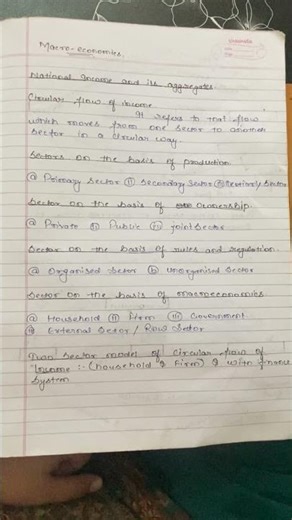 Macro-economics
National Income and its aggregates
Circular flow of income
It refers to that flow
which moves from one sector to another
sector in a circular way.
Sectors on the basis of production
@ Primary Sector (ii) Secondary Sector (iii) Tertiary Sector
Sector on the basis of Ownership.
@ Private (ii) Public (iii) joint sector
Sector on the basis of rules and regulation.
@ Organised Sector (b) Unorganised Sector
Sector on the basis of macroeconomics
@ Household (ii) Firm (iii) Government
External Sector / Row Sector
Two Sector model of circular flow of
Income :- (household & Firm) & with finance
System